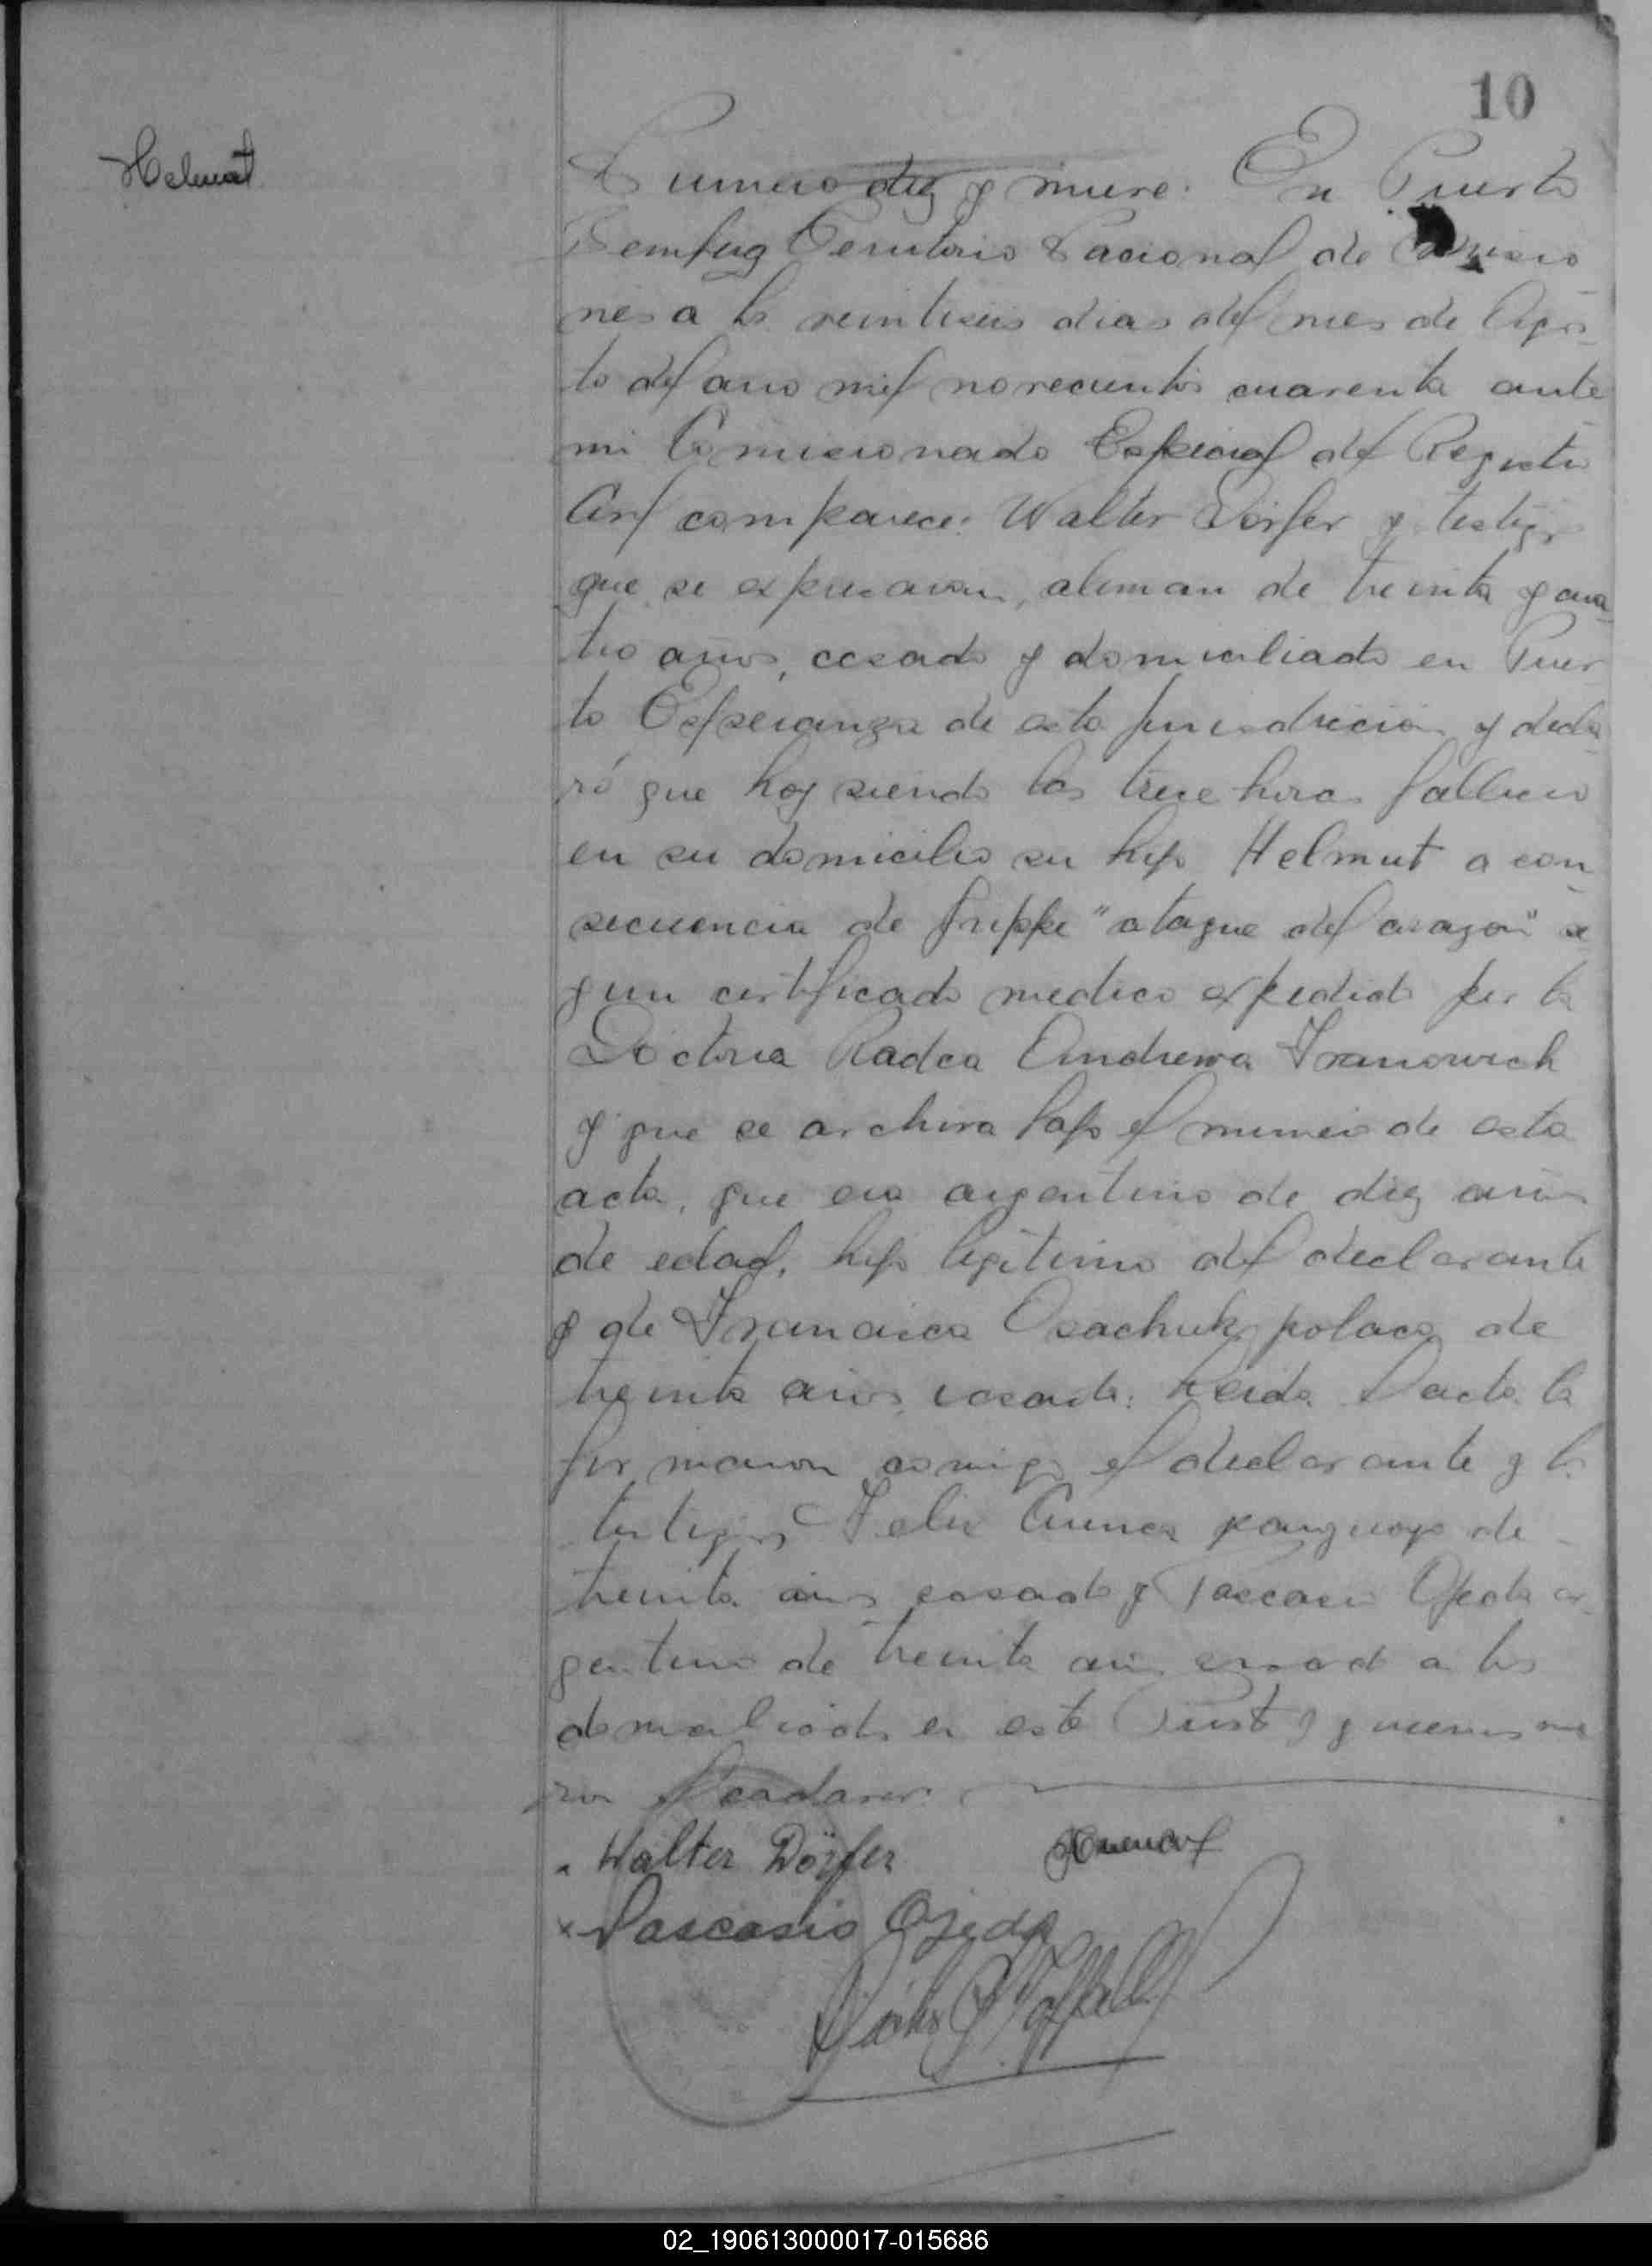 10
Helmut
Numero diez y nueve: En Puerto
Bemberg Territorio Nacional de Misio
nes a los veintiseis dias del mes de Agos-
to del año mil novecientos cuarenta ante
mi Comisionado Especial del Registro
Civil comparece: Walter Dörfer y testigos
que se expresaran, aleman de treinta y cua
tro años, casado y domiciliado en Puer
to Esperanza de esta jurisdiccion y decla
ró que hoy siendo las trece horas fallecio
en su domicilio su hijo Helmut a con
secuencia de grippe "ataque del corazon" se
gun certificado medico expedido por la
Doctora Radca Andrewa Ivanowich
y que se archiva bajo el numero de esta
acta, que era argentino de diez años
de edad, hijo legitimo del declarante
y de Francisca Osachuk, polaca, de
treinta años, casada: Leida el acta la
firmaron conmigo el declarante y los
testigos Felix Cuenca paraguayo de
treinta años casado y Pascasio Ojeda ar
gentino de treinta años casado a los
domiciliados en este Puerto y quienes vie
ron el cadaver.
Walter Dörfer
x Pascasio Ojeda
02_190613000017-015686